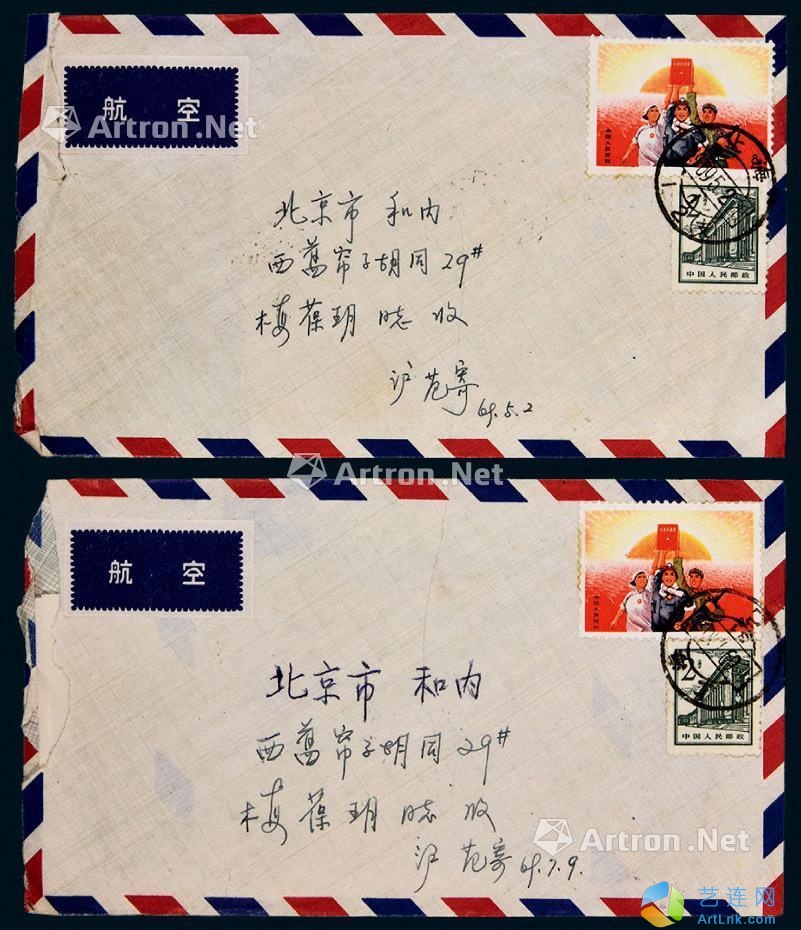 航 空
Artron.Net
中国人民邮政
中国人民邮政
北京市 和内
西旧帘子胡同29#
梅葆玥 同志 收
沪 范寄
69.5.2
Artron.Net
航 空
中国人民邮政
2
中国人民邮政
北京市 和内
西旧帘子胡同29#
梅葆玥 同志 收
沪 范寄 69.7.9.
Artron.Net
艺连网
ArtLnk.com